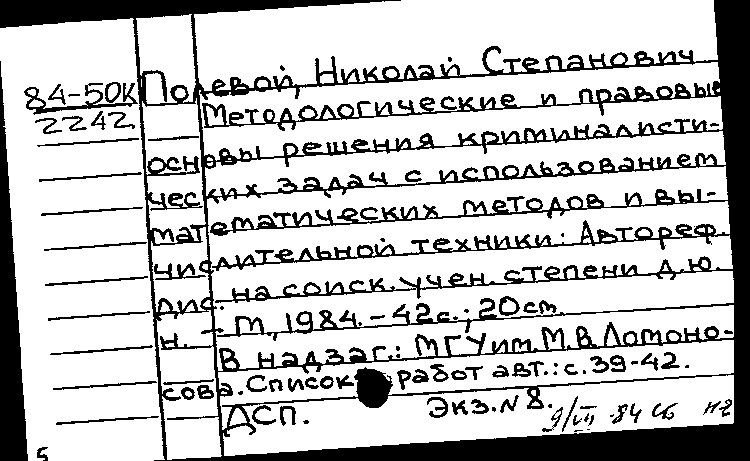 84-50К
2242.
Полевой, Николай Степанович
Методологические и правовые
основы решения криминалисти-
ческих задач с использованием
математических методов и вы-
числительной техники: Автореф.
дис. на соиск. учен. степени д.ю.
н. - М., 1984. - 42с.; 20см.
В надзаг.: МГУ им. М.В. Ломоно-
сова. Список работ авт.: с. 39-42.
ДСП. Экз. N 8.
9/VII -84
5